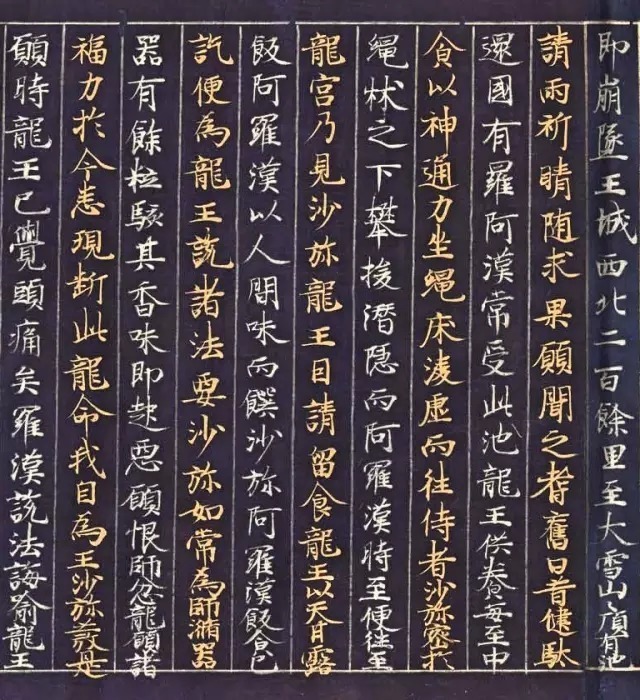 即崩墜王城西北二百餘里至大雪山頂有池
請雨祈晴随求果願聞之耆舊曰昔健馱
邏國有羅阿漢常受此池龍王供養每至中
食以神通力坐繩床凌虚而往侍者沙弥密於
繩牀之下攀援潜隱而阿羅漢時至便往至
龍宮乃見沙弥龍王因請留食龍王以天甘露
飯阿羅漢以人間味而饌沙弥阿羅漢飯食已
訖便為龍王説諸法要沙弥如常為師滌器
器有餘粒駭其香味即起惡願恨師忿龍願諸
福力於今悉現断此龍命我自為王沙弥發是
願時龍王已覺頭痛矣羅漢説法誨喻龍王